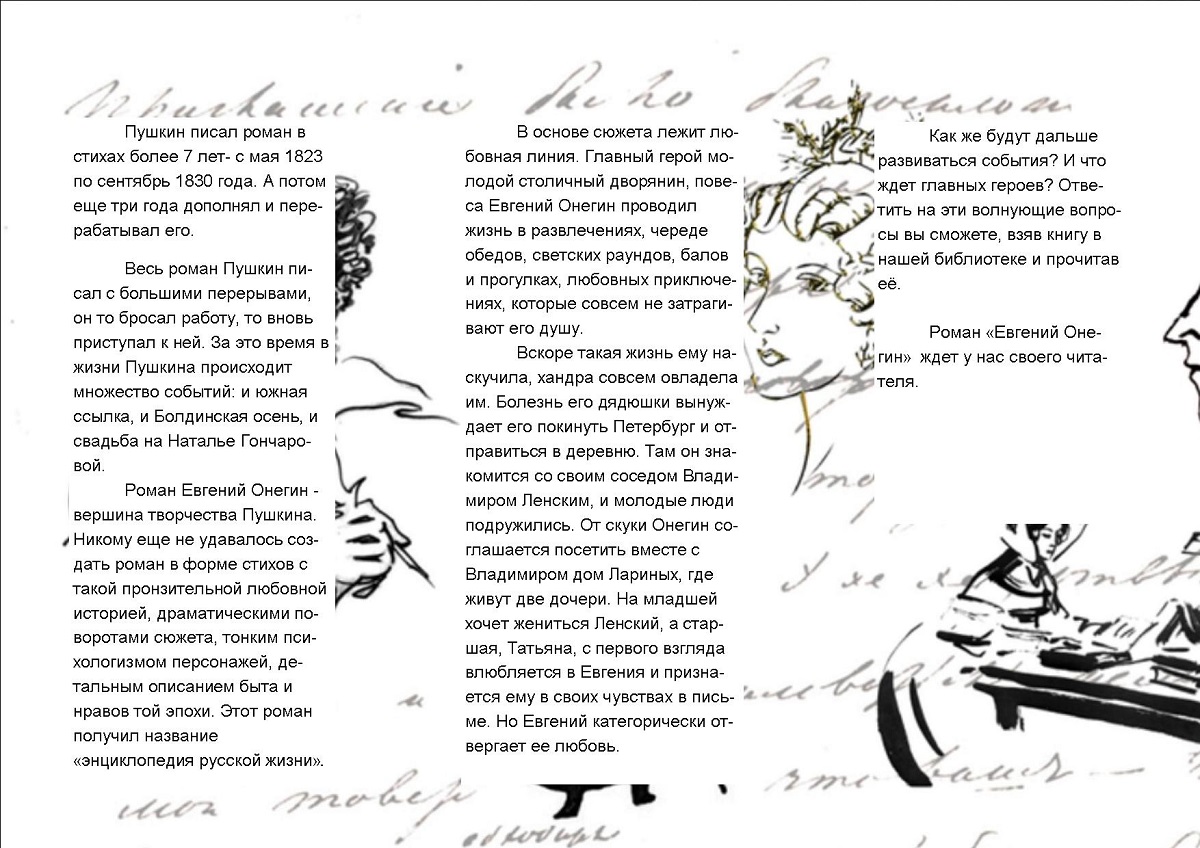 Пушкин писал роман в
стихах более 7 лет- с мая 1823
по сентябрь 1830 года. А потом
еще три года дополнял и пере-
рабатывал его.
Весь роман Пушкин пи-
сал с большими перерывами,
он то бросал работу, то вновь
приступал к ней. За это время в
жизни Пушкина происходит
множество событий: и южная
ссылка, и Болдинская осень, и
свадьба на Наталье Гончаро-
вой.
Роман Евгений Онегин -
вершина творчества Пушкина.
Никому еще не удавалось соз-
дать роман в форме стихов с
такой пронзительной любовной
историей, драматическими по-
воротами сюжета, тонким пси-
хологизмом персонажей, де-
тальным описанием быта и
нравов той эпохи. Этот роман
получил название
«энциклопедия русской жизни».
В основе сюжета лежит лю-
бовная линия. Главный герой мо-
лодой столичный дворянин, пове-
са Евгений Онегин проводил
жизнь в развлечениях, череде
обедов, светских раундов, балов
и прогулках, любовных приключе-
ниях, которые совсем не затраги-
вают его душу.
Вскоре такая жизнь ему на-
скучила, хандра совсем овладела
им. Болезнь его дядюшки вынуж-
дает его покинуть Петербург и от-
правиться в деревню. Там он зна-
комится со своим соседом Влади-
миром Ленским, и молодые люди
подружились. От скуки Онегин со-
глашается посетить вместе с
Владимиром дом Лариных, где
живут две дочери. На младшей
хочет жениться Ленский, а стар-
шая, Татьяна, с первого взгляда
влюбляется в Евгения и призна-
ется ему в своих чувствах в пись-
ме. Но Евгений категорически от-
вергает ее любовь.
Как же будут дальше
развиваться события? И что
ждет главных героев? Отве-
тить на эти волнующие вопро-
сы вы сможете, взяв книгу в
нашей библиотеке и прочитав
её.
Роман «Евгений Оне-
гин»  ждет у нас своего чита-
теля.